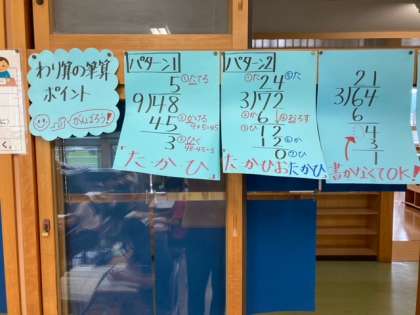 わり算の筆算
ポイント
がんばろう!
パターン1
5
9)48
45
3
①たてる
②かける
9×5=45
③ひく
48-45=3
た・か・ひ
パターン2
24
3)72
6
12
12
0
①た
②か
③ひ
④おろす
⑤た
⑥か
⑦ひ
た・かひおたかひ
21
3)64
6
4
3
1
書かなくてOK!